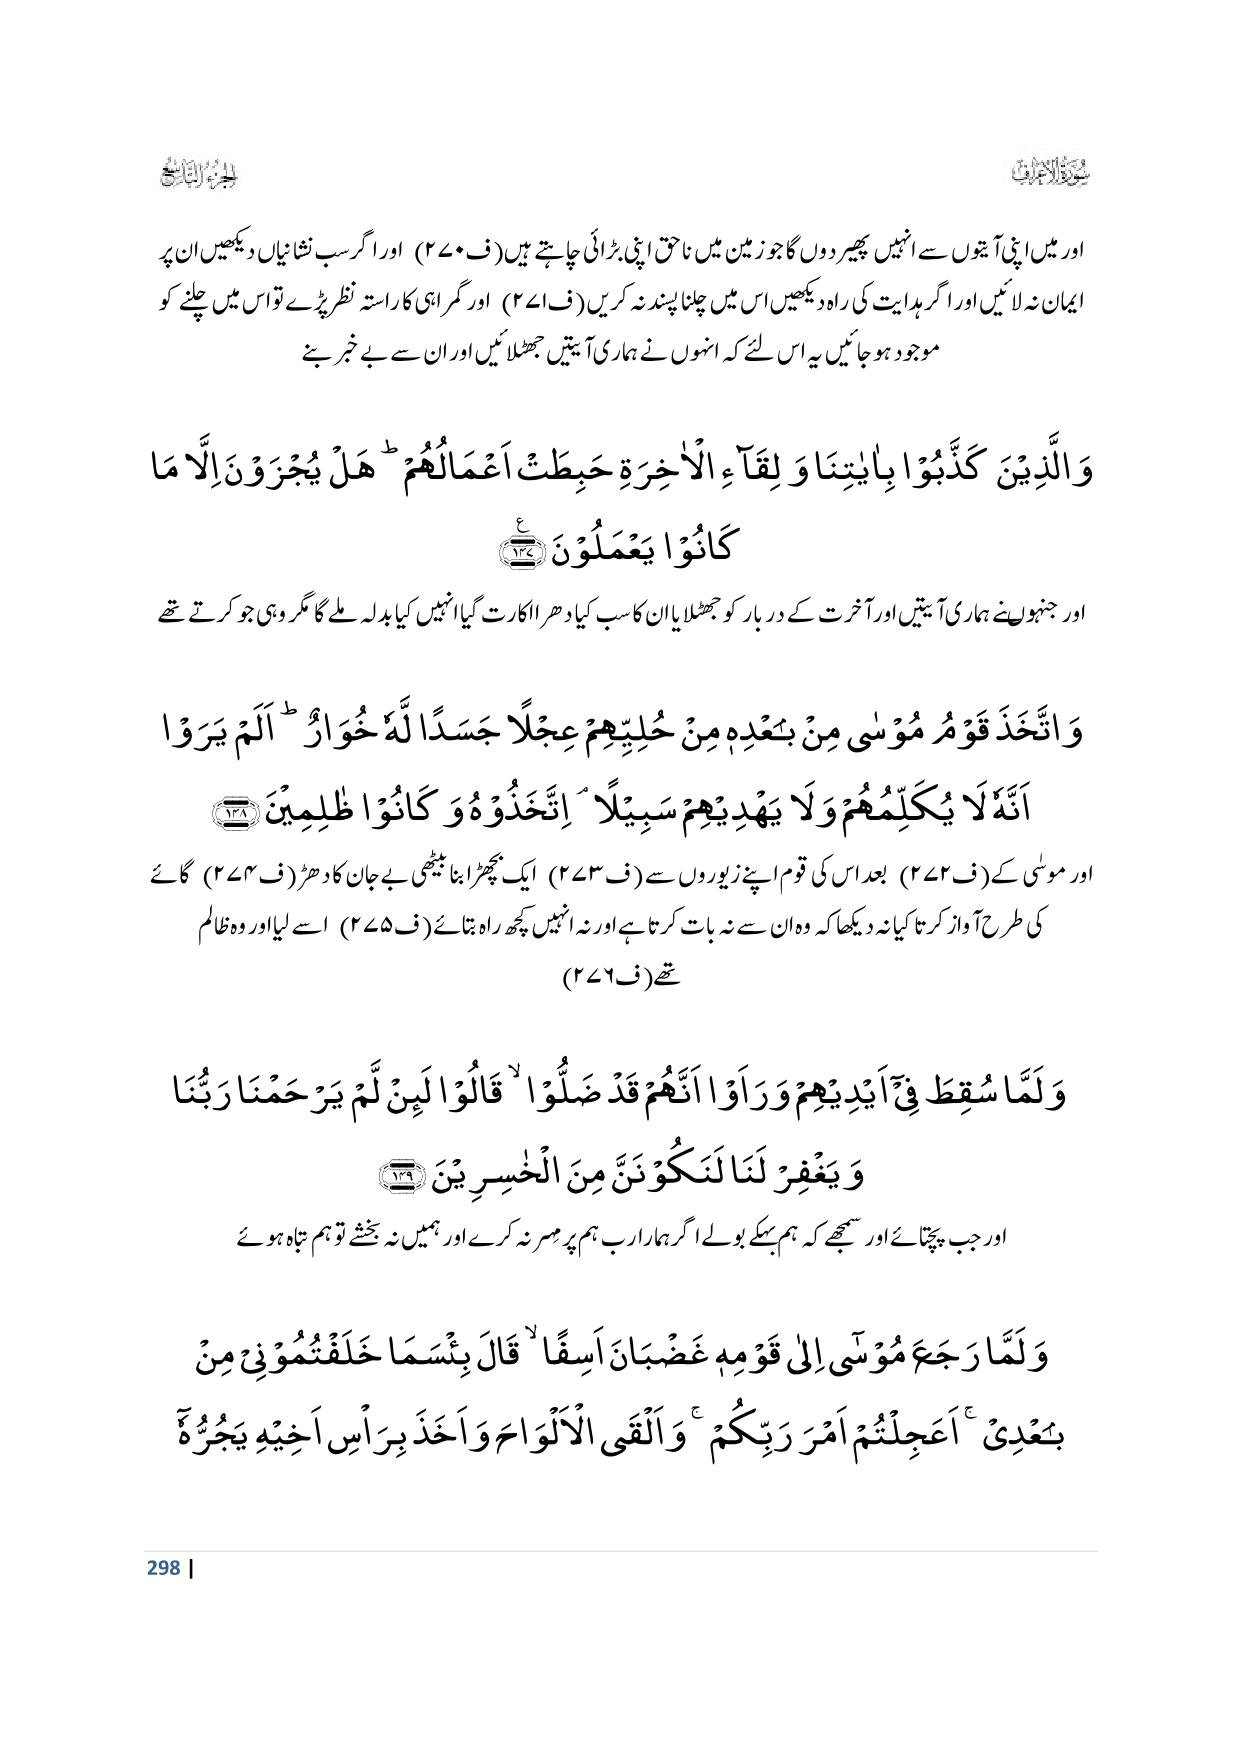 سُورَةُ الْاَعْرَاف
الجزء التاسع
اور میں اپنی آیتوں سے انہیں پھیر دوں گا جو زمین میں ناحق اپنی بڑائی چاہتے ہیں (ف۲۷۰) اور اگر سب نشانیاں دیکھیں ان پر
ایمان نہ لائیں اور اگر ہدایت کی راہ دیکھیں اس میں چلنا پسند نہ کریں (ف۲۷۱) اور گمراہی کا راستہ نظر پڑے تو اس میں چلنے کو
موجود ہو جائیں یہ اس لئے کہ انہوں نے ہماری آیتیں جھٹلائیں اور ان سے بے خبر بنے
وَالَّذِیْنَ کَذَّبُوْا بِاٰیٰتِنَا وَ لِقَآءِ الْاٰخِرَةِ حَبِطَتْ اَعْمَالُهُمْ ؕ هَلْ یُجْزَوْنَ اِلَّا مَا
کَانُوْا یَعْمَلُوْنَ ﴿۱۴۷﴾ ع
اور جنہوں نے ہماری آیتیں اور آخرت کے دربار کو جھٹلایا ان کا سب کیا دھرا اکارت گیا انہیں کیا بدلہ ملے گا مگر وہی جو کرتے تھے
وَ اتَّخَذَ قَوْمُ مُوْسٰی مِنْۢ بَعْدِهٖ مِنْ حُلِیِّهِمْ عِجْلًا جَسَدًا لَّهٗ خُوَارٌ ؕ اَلَمْ یَرَوْا
اَنَّهٗ لَا یُکَلِّمُهُمْ وَلَا یَهْدِیْهِمْ سَبِیْلًا ۘ اِتَّخَذُوْهُ وَ کَانُوْا ظٰلِمِیْنَ ﴿۱۴۸﴾
اور موسٰی کے (ف۲۷۲) بعد اس کی قوم اپنے زیوروں سے (ف۲۷۳) ایک بچھڑا بنا بیٹھی بے جان کا دھڑ (ف۲۷۴) گائے
کی طرح آواز کرتا کیا نہ دیکھا کہ وہ ان سے نہ بات کرتا ہے اور نہ انہیں کچھ راہ بتائے (ف۲۷۵) اسے لیا اور وہ ظالم
تھے (ف۲۷۶)
وَ لَمَّا سُقِطَ فِیْۤ اَیْدِیْهِمْ وَ رَاَوْا اَنَّهُمْ قَدْ ضَلُّوْا ۙ قَالُوْا لَئِنْ لَّمْ یَرْحَمْنَا رَبُّنَا
وَ یَغْفِرْ لَنَا لَنَکُوْنَنَّ مِنَ الْخٰسِرِیْنَ ﴿۱۴۹﴾
اور جب پچتائے اور سمجھے کہ ہم بہکے بولے اگر ہمارا رب ہم پر مِہر نہ کرے اور ہمیں نہ بخشے تو ہم تباہ ہوئے
وَ لَمَّا رَجَعَ مُوْسٰۤی اِلٰی قَوْمِهٖ غَضْبَانَ اَسِفًا ۙ قَالَ بِئْسَمَا خَلَفْتُمُوْنِیْ مِنْۢ
بَعْدِیْ ۚ اَعَجِلْتُمْ اَمْرَ رَبِّکُمْ ۚ وَ اَلْقَی الْاَلْوَاحَ وَ اَخَذَ بِرَاْسِ اَخِیْهِ یَجُرُّهٗۤ
298 |